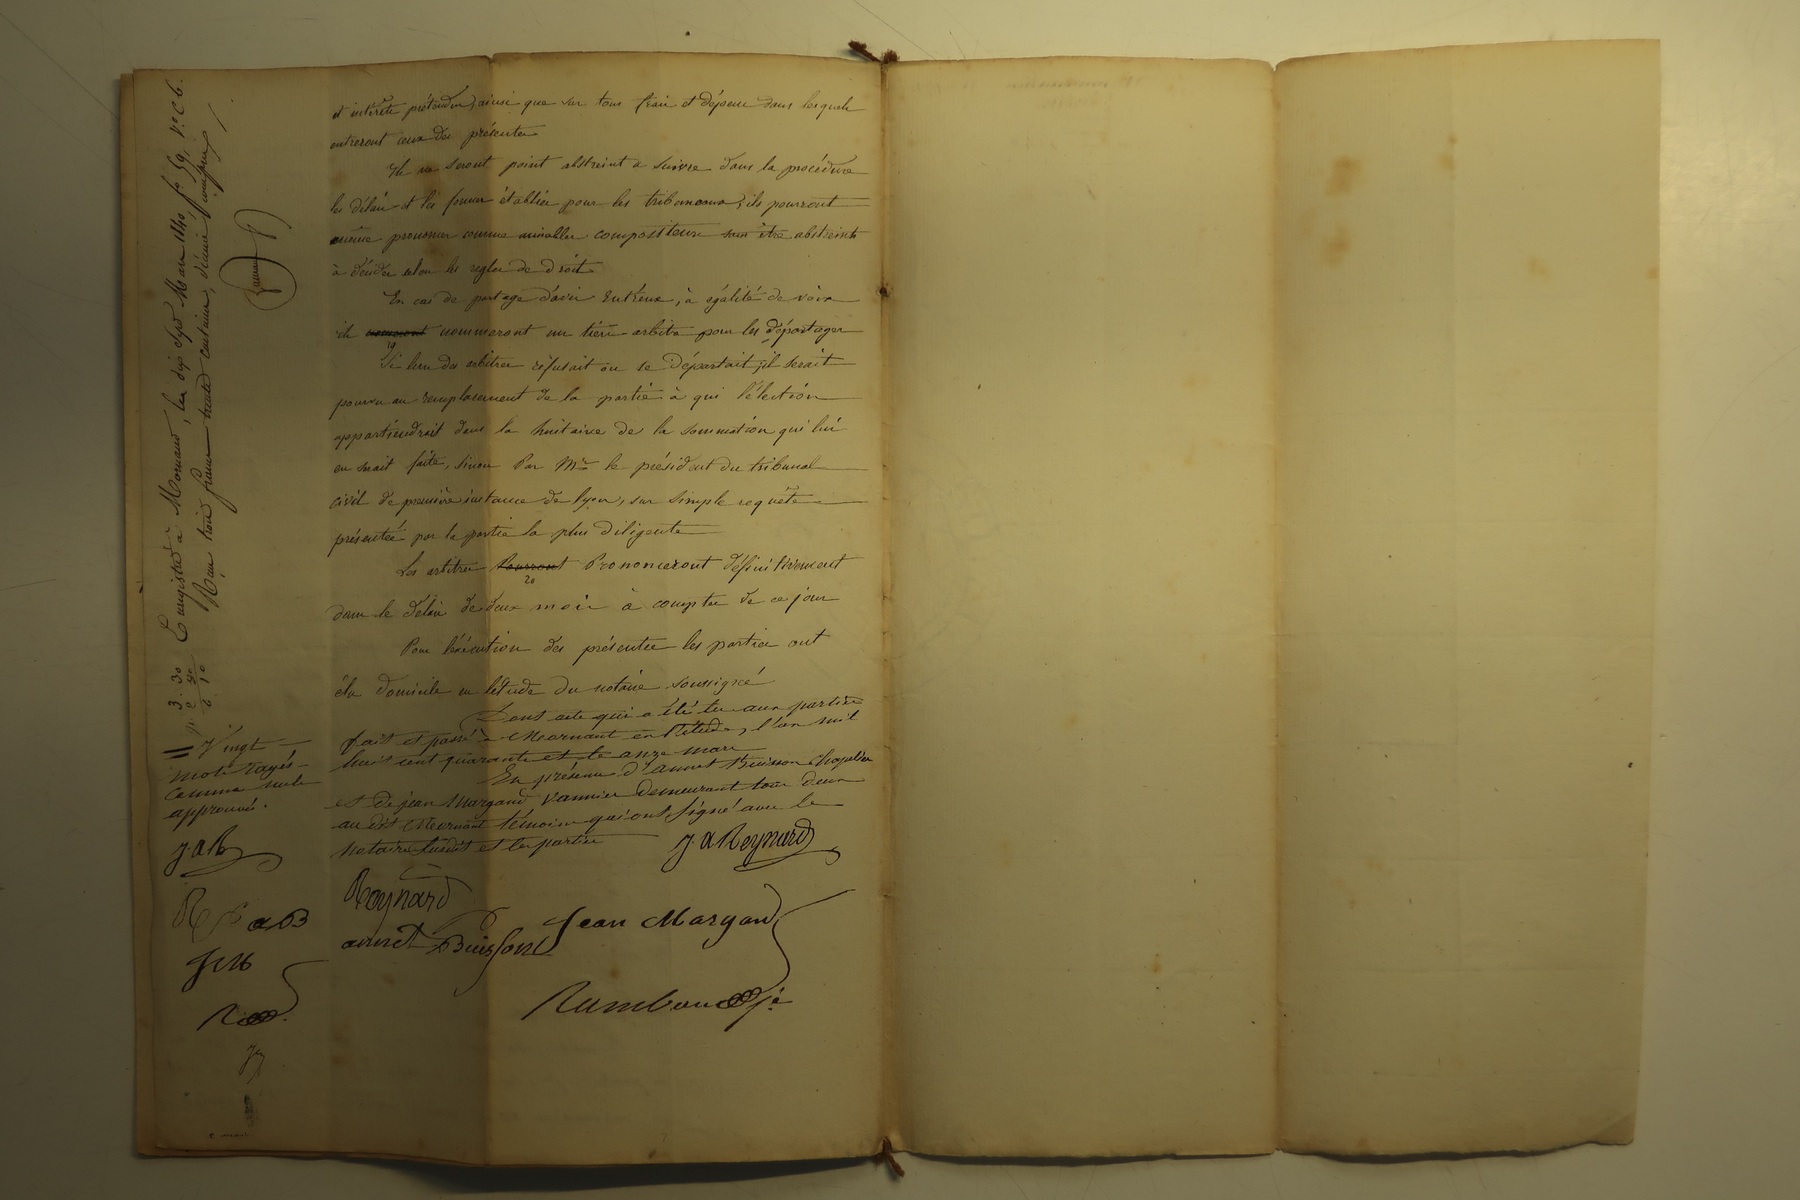 et intérêts prétendus, ainsi que sur tous frais et dépens dans lesquels
entreront ceux des présentes
Ils ne seront point abstreints a suivre dans la procédure
les délais et les formes établies pour les tribunaux, ils pourront
même prononcer comme amiables compositeurs sans être abstreints
à décider selon les regles de droit
En cas de partage d'avis entr'eux, à égalité de voix
ils nommeront un tiers arbitre pour les départager
19
Si l'un des arbitres refusait ou se départait, il serait
pourvu au remplacement de la partie à qui l'élection
appartiendrait dans la huitaine de la sommation qui lui
en serait faite, sinon Par Mr le président du tribunal
civil de première instance de lyon, sur simple requête
présentée par la partie la plus diligente
Les arbitres Pourront Prononceront définitivement
20
dans le délai de deux mois à compter de ce jour
Pour l'éxécution des présentes les parties ont
élu domicile en l'étude du notaire soussigné
Dont acte qui a été lu aux parties
fait et passé à Mornant en l'étude, l'an mil
huit cent quarante et le onze mars
En présence d'annet Buisson chapelier
et de jean Margand vannier demeurant tous deux
au dit Mornant témoins qui ont signé avec le
notaire susdit et les parties
J. A Reynard
Reynard
annet Buisson
Jean Margand
Rambaud
Vingt
mots rayés
comme nuls
approuvés.
J. A R
R
a B
J M
Enregistré à Mornant, les dix sept Mars 1840, f° 59, V° C 6.
Reçu trois francs trente centimes, décime compris
3. 30